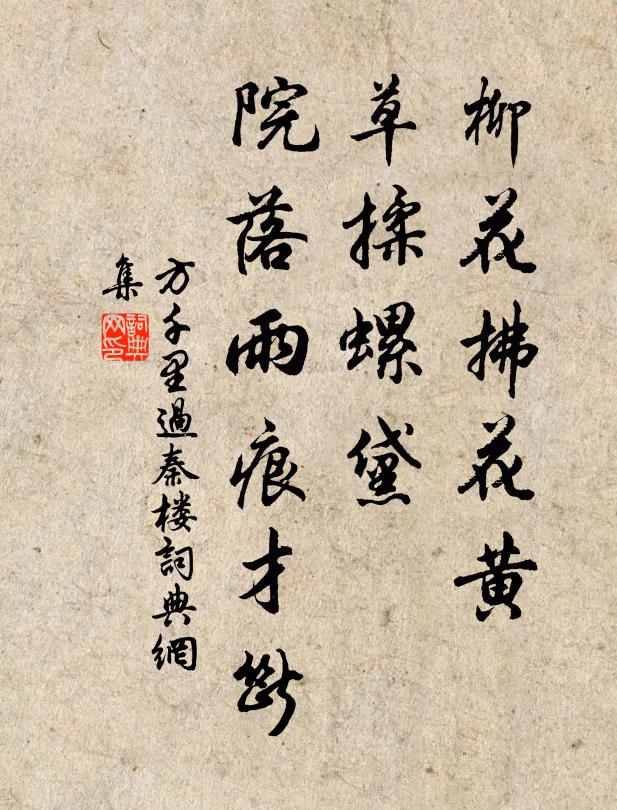 柳花拂花黄
草揉螺黛
院落雨痕才断
方千里過秦楼詞典網
集
詞典
网印